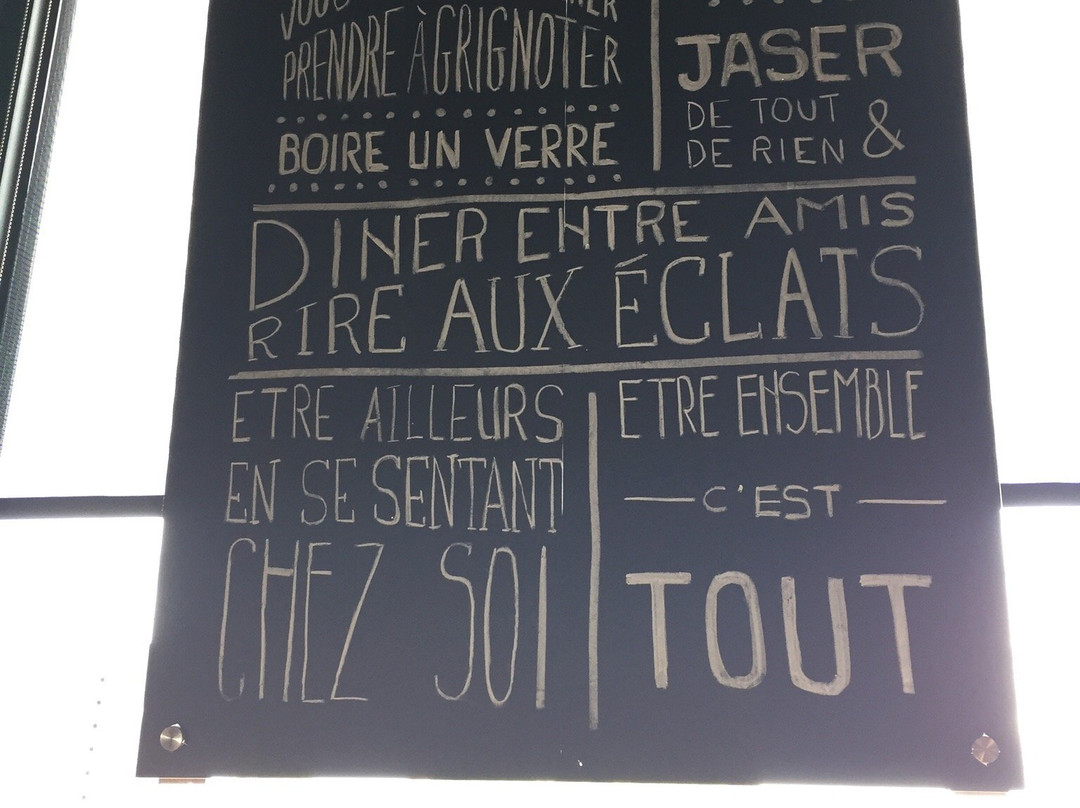 PRENDRE À GRIGNOTER
BOIRE UN VERRE
JASER
DE TOUT &
DE RIEN
DINER ENTRE AMIS
RIRE AUX ÉCLATS
ETRE AILLEURS
EN SE SENTANT
CHEZ SOI
ETRE ENSEMBLE
C'EST
TOUT